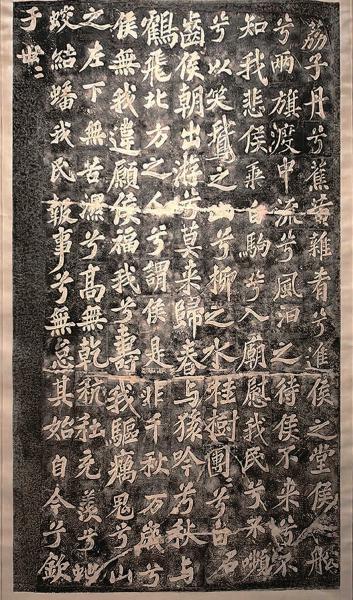 荔子丹兮蕉黄雜肴兮進侯之堂侯之船
兮兩旗渡中流兮風汩之待侯不来兮不
知我悲侯乘白駒兮入廟慰我民兮不嚬
兮以笑鵝之山兮柳之水桂樹團〻兮白石
齒〻侯朝出游兮莫来歸春与猨吟兮秋与
鶴飛北方之人兮謂侯是非千秋万歲兮
侯無我違願侯福我兮壽我驅癘鬼兮山
之左下無苦濕兮高無乾秔稌充羨兮蛇
蛟結蟠我民報事兮無怠其始自今兮欽
于世〻